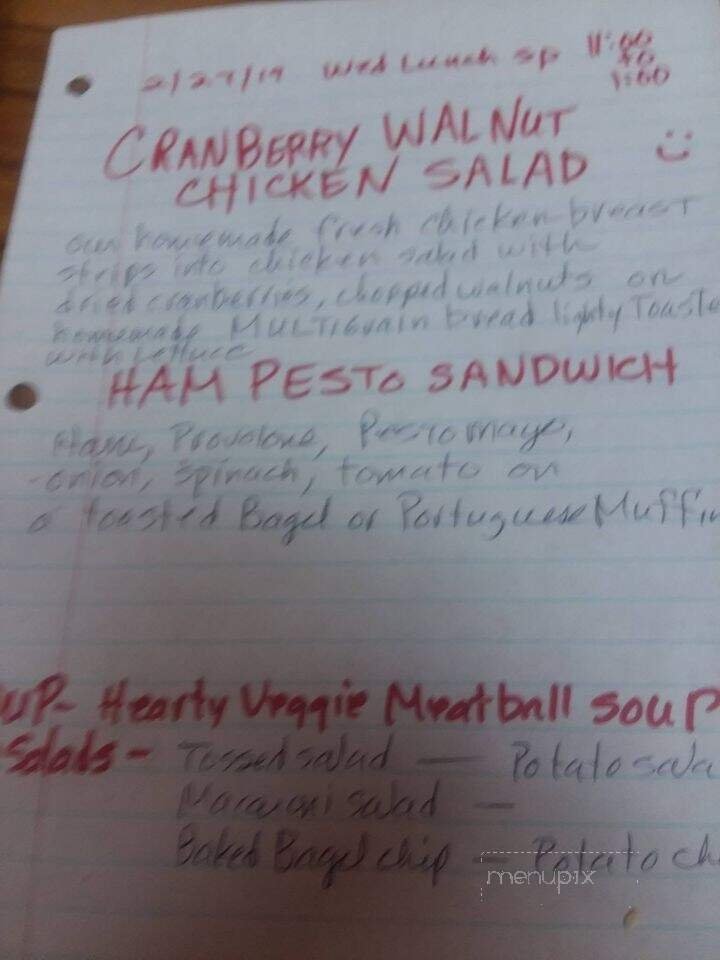 2/27/19 Wed Lunch sp 11:00
to
1:00
CRANBERRY WALNUT
CHICKEN SALAD
our homemade fresh chicken breast
strips into chicken salad with
dried cranberries, chopped walnuts on
homemade MULTIGrain bread lighty Toaste
with lettuce
HAM PESTO SANDWICH
Ham, Provolone, Pesto mayo,
onion, spinach, tomato on
a toasted Bagel or Portuguese Muffin
UP- Hearty Veggie Meatball SOUP
Salads - Tossed salad — Potato sala
Macaroni Salad —
Baked Bagel chip — Potato ch
menupix